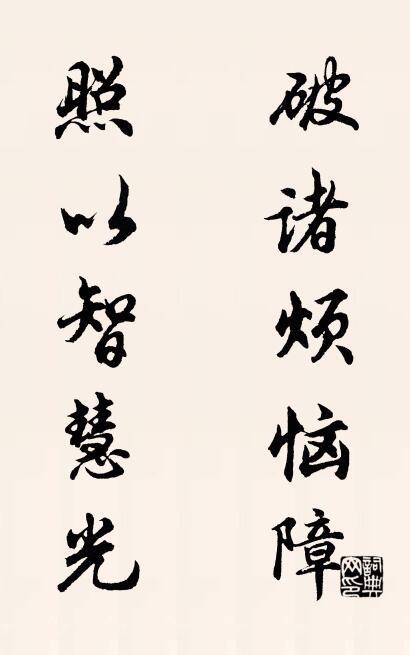 破诸烦恼障
照以智慧光
詞典网印